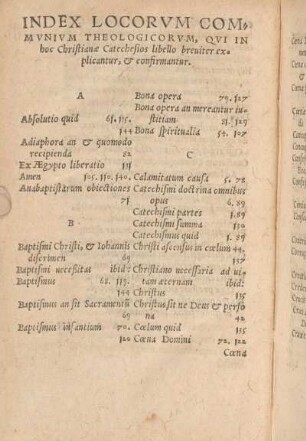 INDEX LOCORVM COM-
MVNIVM THEOLOGICORVM, QVI IN
hoc Christianæ Catecheseos libello breuiter ex-
plicantur, & confirmantur.
A
Absolutio quid 61. 115.
144
Adiaphora an & quomodo
recipienda 82
Ex Ægypto liberatio 111
Amen 105. 110. 140.
Anabaptistarum obiectiones
71
B
Baptismi Christi, & Iohannis
discrimen 69
Baptismi necessitas ibid:
Baptismus 68. 119.
144
Baptismus an sit Sacramentũ
69
Baptismus infantium 70.
120
Bona opera 79. 127
Bona opera an mereantur iu-
stitiam 81. 129
Bona spiritualia 59. 107
C
Calamitatum causa 5. 78.
Catechismi doctrina omnibus
opus 6. 89
Catechismi partes 1. 89
Catechismi summa 110
Catechismus quid 1. 89
Christi ascensus in cœlum 44.
99
Christiano necessaria ad ui-
tam æternam ibid:
Christus 115
Christus sit ne Deus & perso
na 42
Cœlum quid 115
Cœna Domini 72. 122
Cœna